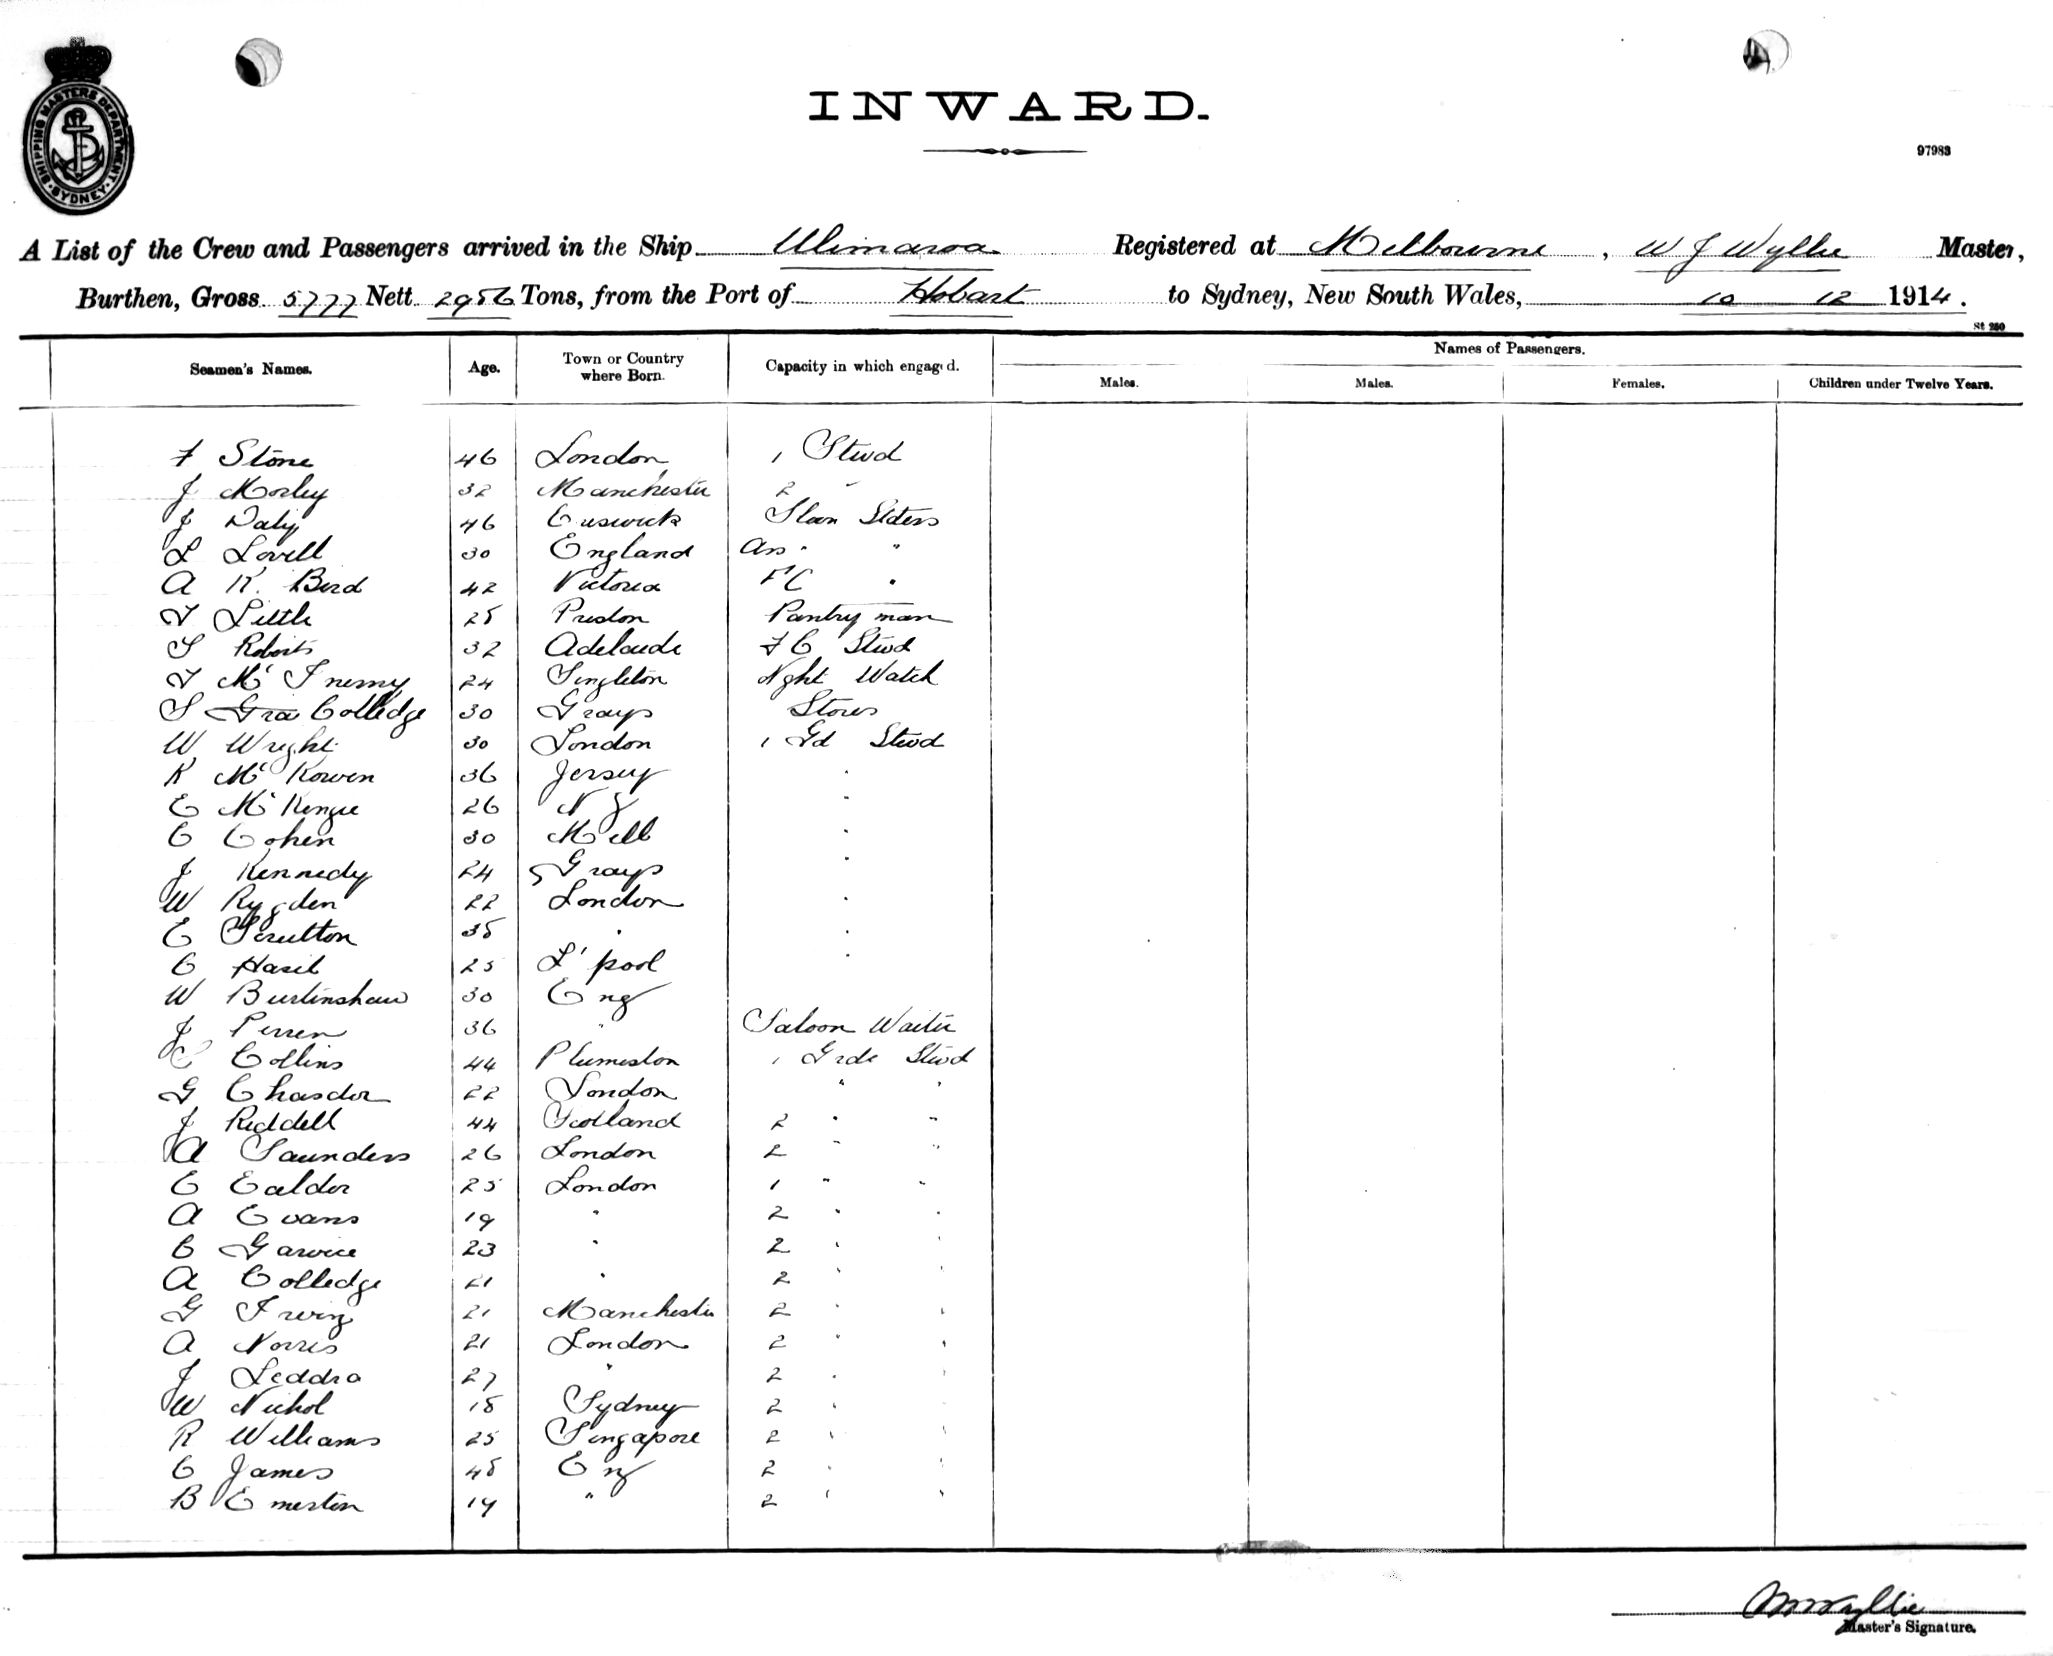 SHIPPING MASTERS DEPARTMENT SYDNEY
INWARD.
97983
A List of the Crew and Passengers arrived in the Ship Ulimaroa Registered at Melbourne, W J Wyllie Master,
Burthen, Gross 5777 Nett 2956 Tons, from the Port of Hobart to Sydney, New South Wales, 10 12 1914.
St 250
Seamen's Names. Age. Town or Country where Born. Capacity in which engaged. Names of Passengers.
Males. Males. Females. Children under Twelve Years.
F Stone 46 London 1 Stwd
J Morley 32 Manchester 2 "
J Daly 46 Sloon
L Lovell 30 England Ass " "
A R. Bird 42 Victoria FC "
T Little 28 Preston Pantry man
S Roberts 32 Adelaide F C Stwd
T McInerny 24 Singleton Nght Watch
S Gra Colledge 30 Grays Stores
W Wright 30 London 1 Gd Stwd
K McKowen 36 Jersey "
E McKenzie 26 N Z "
C Cohen 30 Melb "
J Kennedy 24 Grays "
W Rygden 22 London "
E Scrutton 38 " "
C Hasil 25 L'pool "
W Burtinshaw 30 Eng
J Perren 36 " Saloon Waiter
C Collins 44 Plumeston 1 Grde Stwd
G Chasder 22 London " "
J Riddell 44 Scotland 2 " "
A Saunders 26 London 2 " "
E Ealder 25 London 1 " "
A Evans 19 " 2 " "
C Garvice 23 " 2 " "
A Colledge 21 " 2 "
G Irving 21 Manchester 2 " "
A Norris 21 London 2 " "
J Leddra 27 " 2 " "
W Nichol 18 Sydney 2 " "
R Williams 25 Singapore 2 " "
C James 48 Eng 2 " "
B Emerton 19 " 2 " "
WJWyllie
Master's Signature.